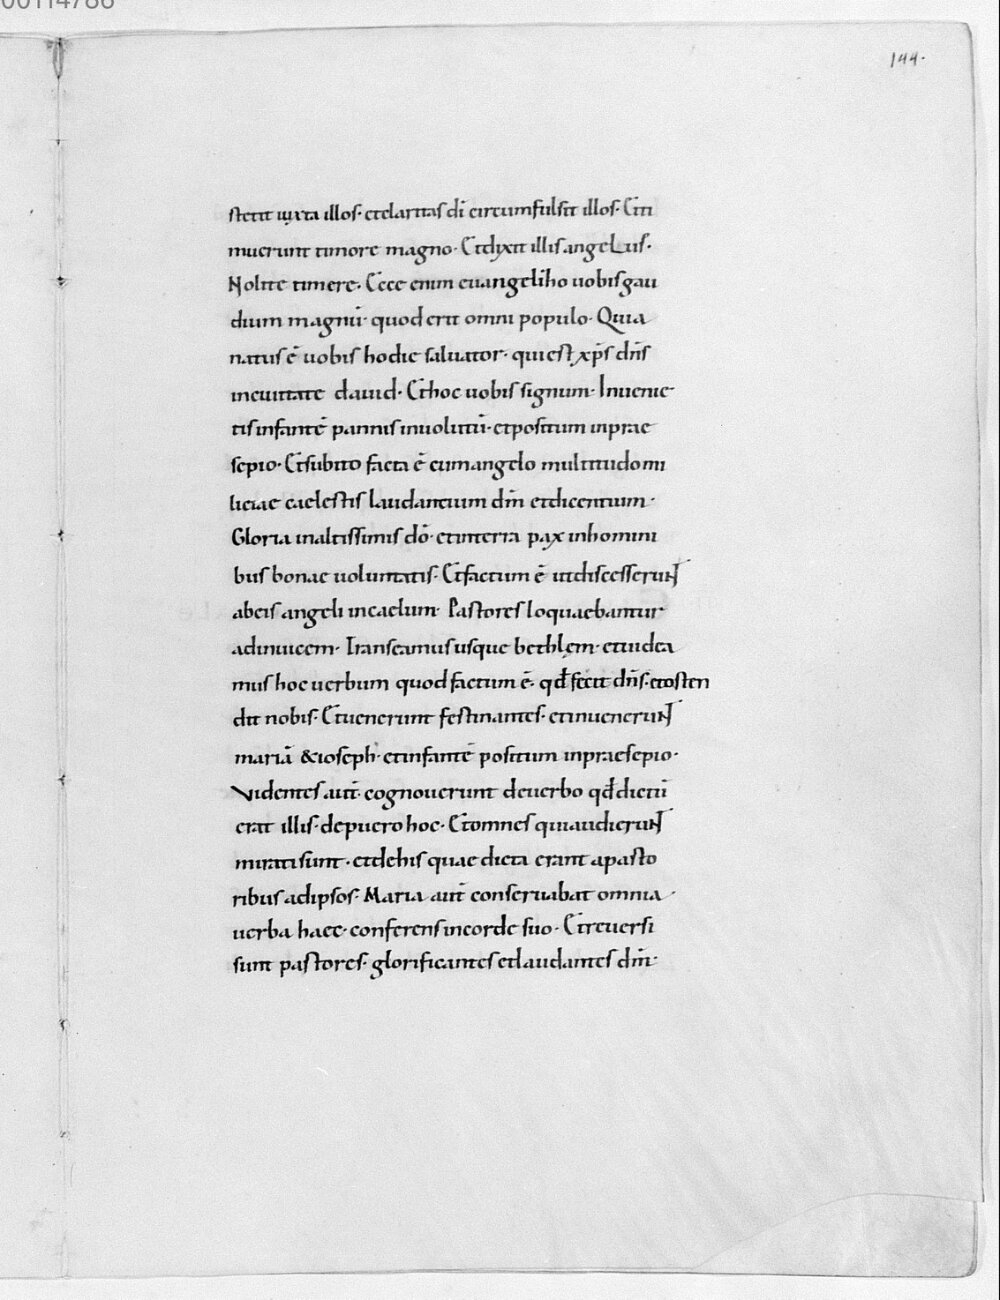 00114786
144.
stetit iuxta illos· et claritas dī circumfulsit illos· Et ti
muerunt timore magno· Et dixit illis angelus·
Nolite timere· Ecce enim euangelizo uobis gau
dium magnū· quod erit omni populo· Quia
natus ē uobis hodie saluator· qui est xp̄s dn̄s
in ciuitate dauid· Et hoc uobis signum· Inuenie
tis infantē pannis inuolutū· et positum in prae
sepio· Et subito facta ē cum angelo multitudo mi
litiae caelestis laudantium dm̄ et dicentium·
Gloria in altissimis dō· et in terra pax in homini
bus bonae uoluntatis· Et factum ē ut discesserunt
ab eis angeli in caelum· Pastores loquaebantur
ad inuicem· Transeamus usque bethlem· et uidea
mus hoc uerbum quod factum ē· qd̄ fecit dn̄s· et osten
dit nobis· Et uenerunt festinantes· et inuenerunt
mariā & ioseph· et infantē positum in praesepio·
Videntes aut̄ cognouerunt de uerbo qd̄ dictū
erat illis· de puero hoc· Et omnes qui audierunt
mirati sunt· et de his quae dicta erant a pasto
ribus ad ipsos· Maria aut̄ conseruabat omnia
uerba haec· conferens in corde suo· Et reuersi
sunt pastores· glorificantes et laudantes dm̄·